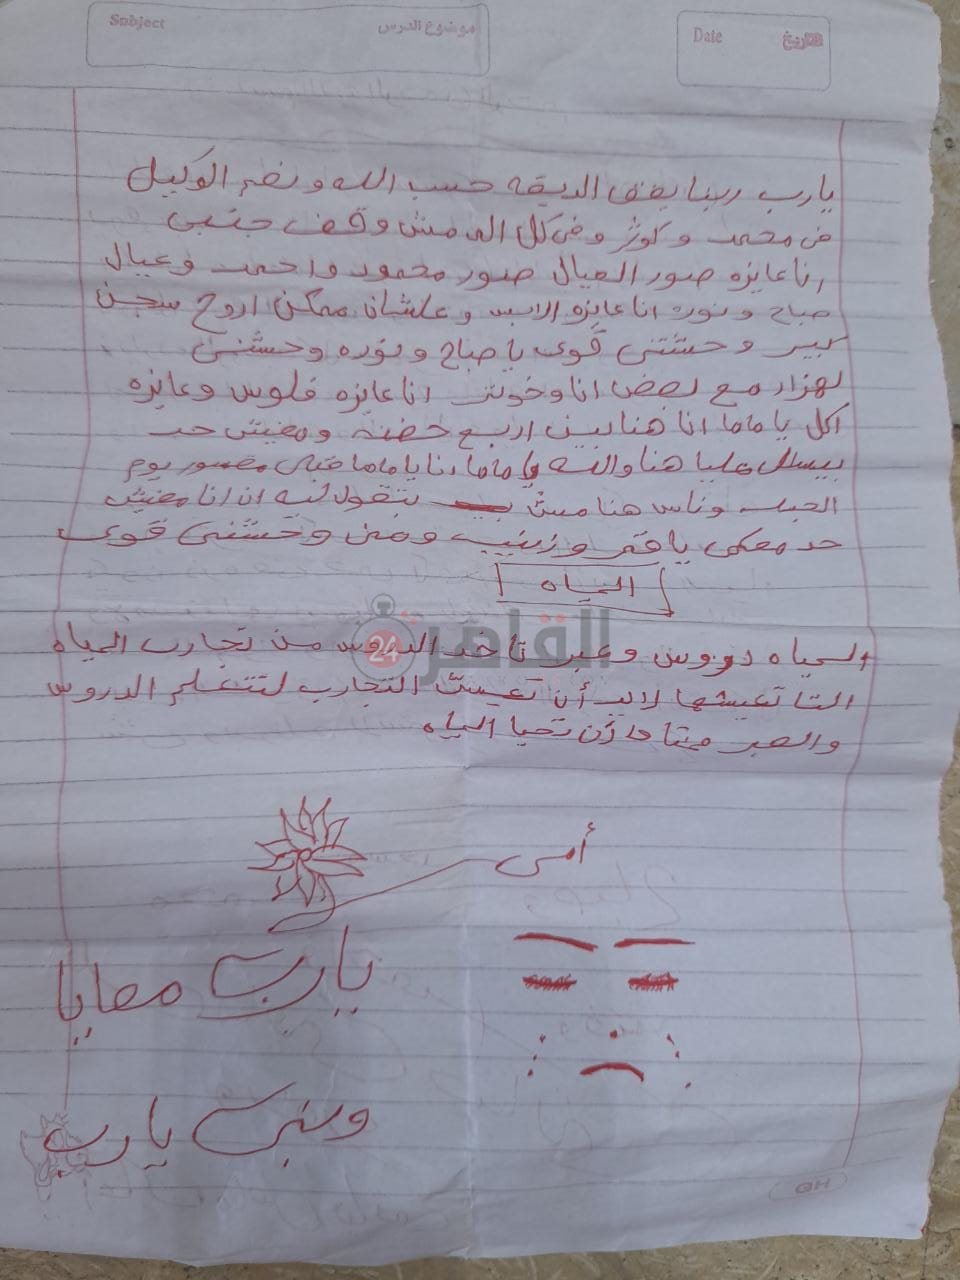 Subject موضوع الدرس
Date التاريخ
يارب ربنا يفق الديقه حسب الله ونعم الوكيل
في محمد و كوثر وفي كل الي مش وقف جنبي
انا عايزه صور العيال صور محمود واحمد وعيال
صباح ونوره انا عايزه الابس وعلشان ممكن اروح سجن
كبير وحشتني قوي يا صباح ونوره وحشني
لهزار مع بعض انا وخوتي انا عايزه فلوس وعايزه
اكل يا ماما انا هنا بين اربع حضنه ومفيش حد
بيسال عليا هنا والله يا ماما انا يا ماما
الحبس وناس هنا مش بتقول ليه ان انا مفيش
حد معكي يا قمر وزينب ومني وحشني قوي
الحياه
الحياه دروس وعبر تأخد الدروس من تجارب الحياه
التا تعيشها لابد أن تعيش التجارب لتتعلم الدروس
والصبر مفتاح أن تحيا الحياه
القاهرة 24
أمي
يارب معايا
وبنتي يارب
GH